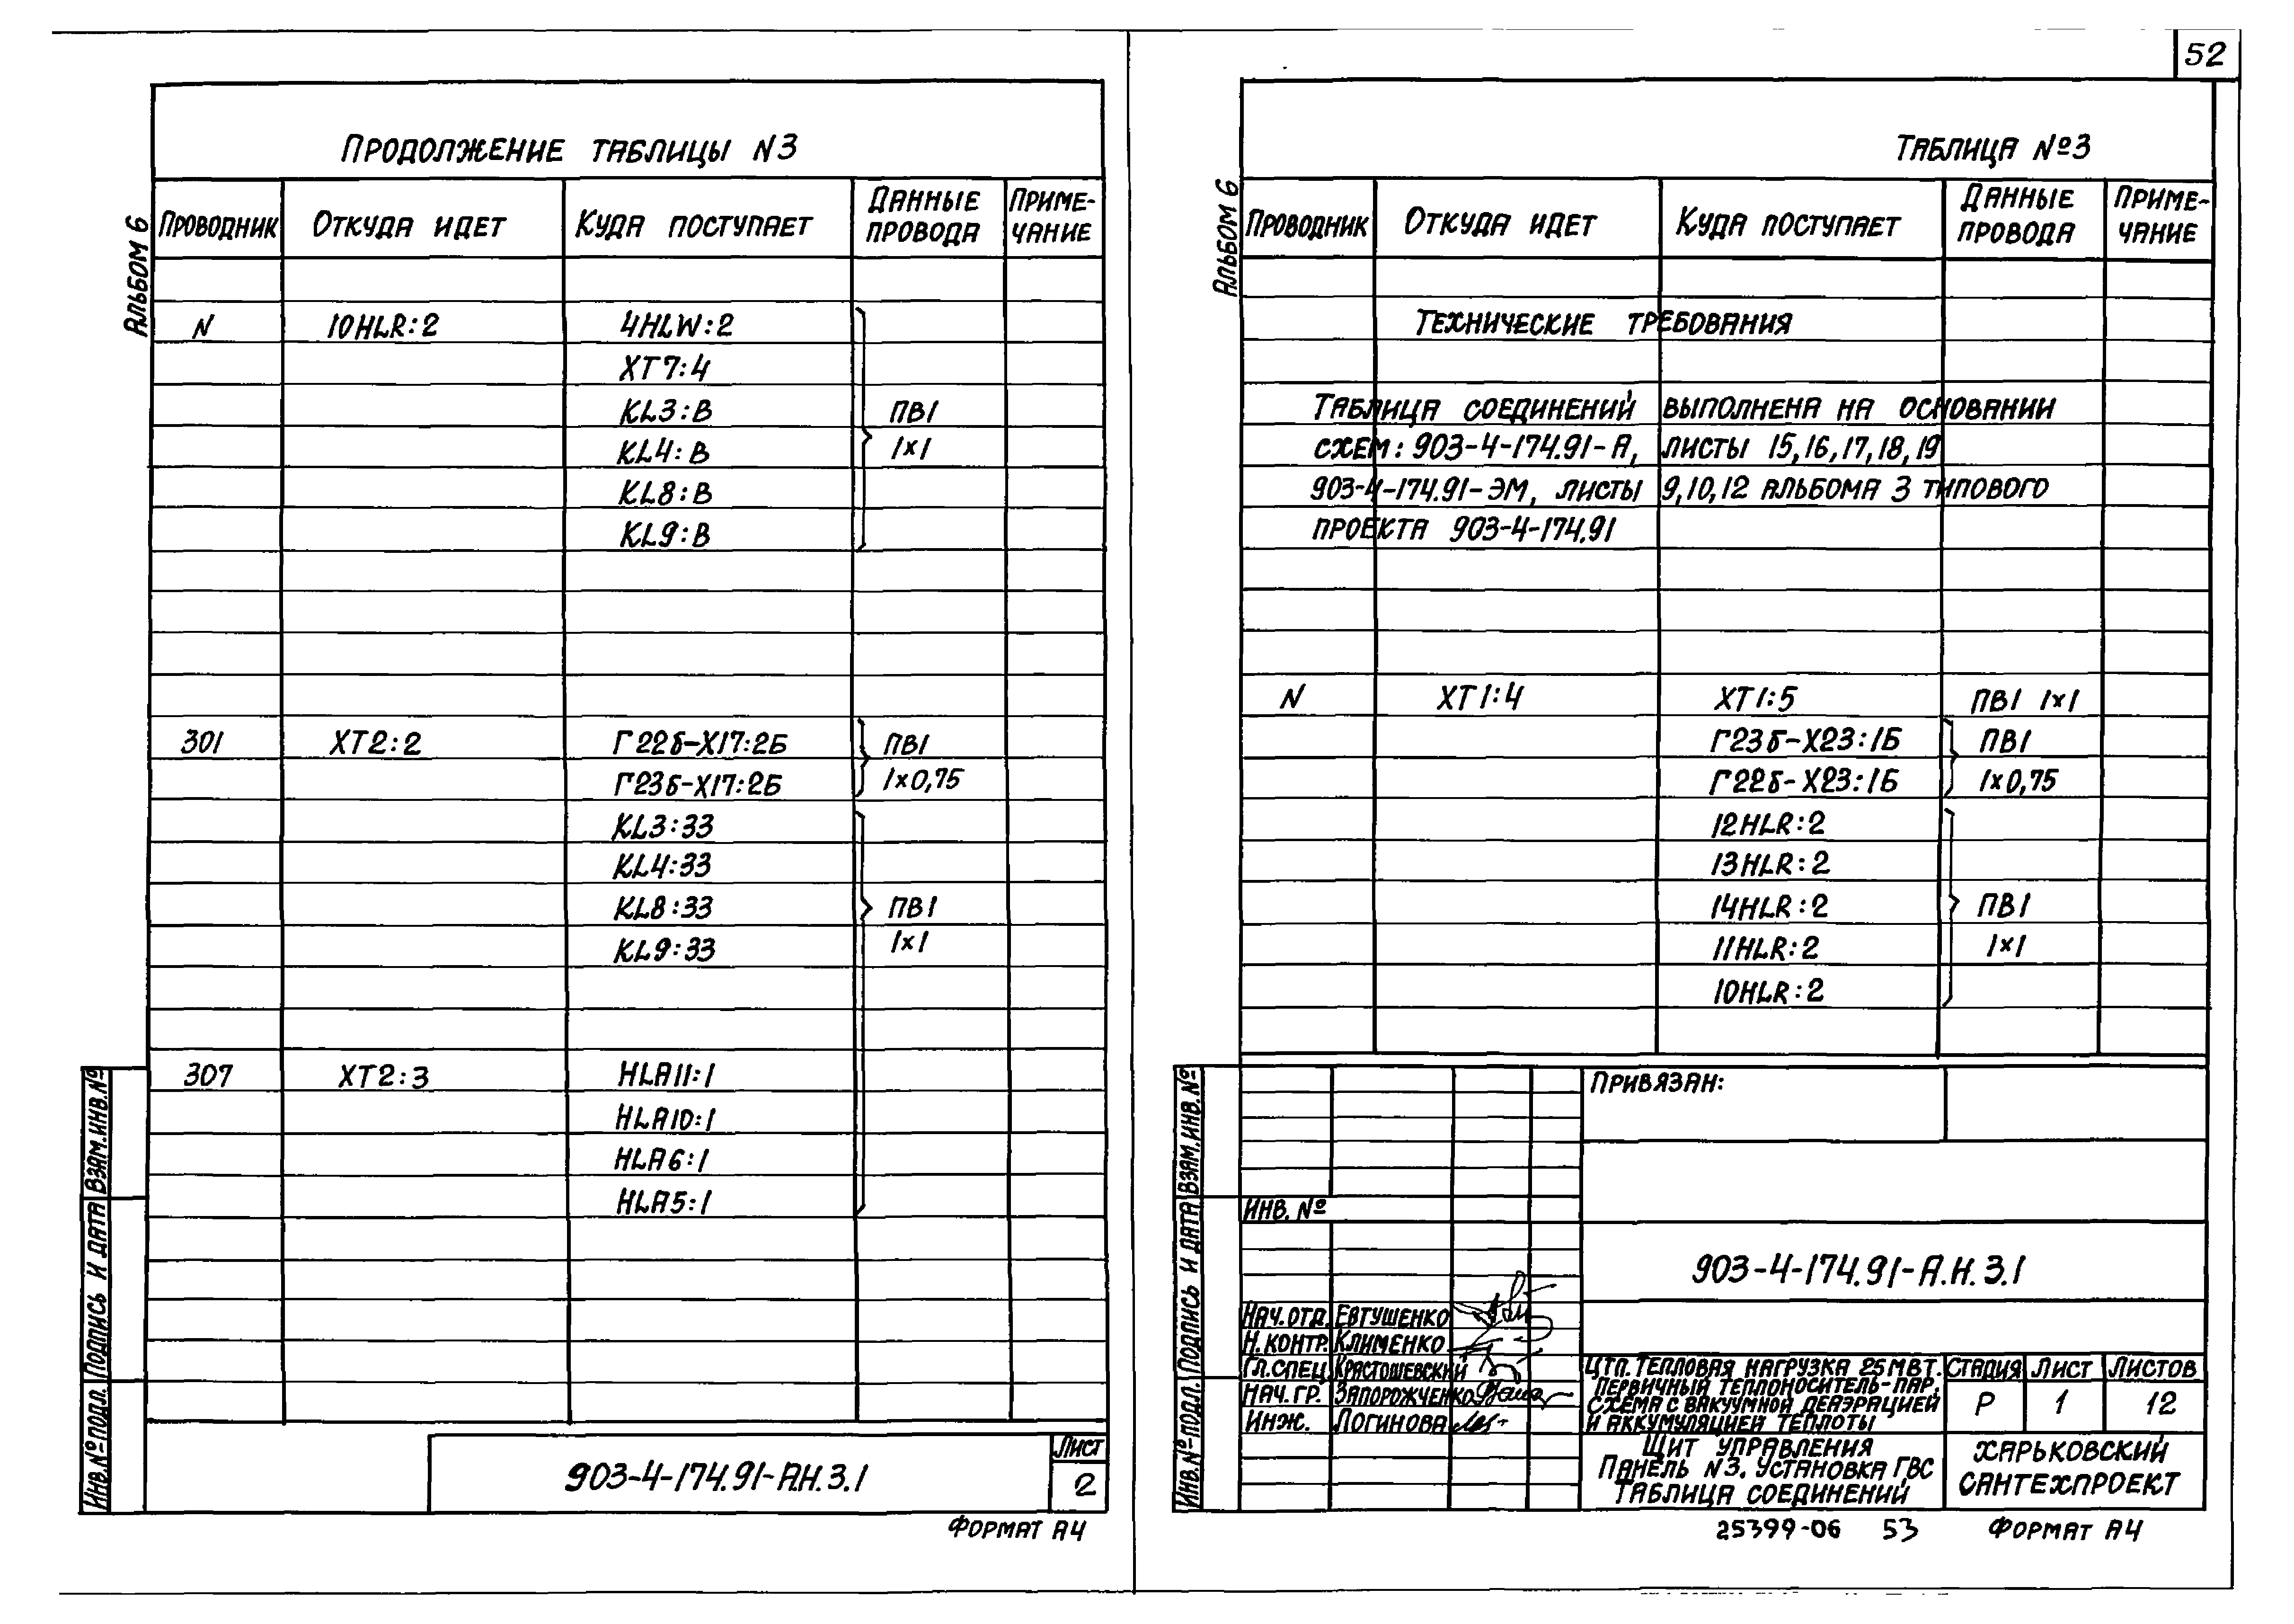 52
Продолжение таблицы N3
Альбом 6
Проводник Откуда идет Куда поступает Данные провода Примечание
N 10HLR:2 4HLW:2
XT7:4
KL3:B ПВ1
KL4:B 1×1
KL8:B
KL9:B
301 XT2:2 Г22б-X17:2Б ПВ1
Г23б-X17:2Б 1×0,75
KL3:33
KL4:33
KL8:33 ПВ1
KL9:33 1×1
307 XT2:3 HLA11:1
HLA10:1
HLA6:1
HLA5:1
Инв.№подл. Подпись и дата Взам.инв.№
903-4-174.91-А.Н.3.1
Лист
2
Формат А4
Таблица №3
Альбом 6
Проводник Откуда идет Куда поступает Данные провода Примечание
Технические требования
Таблица соединений выполнена на основании
схем: 903-4-174.91-А, листы 15,16,17,18,19
903-4-174.91-ЭМ, листы 9,10,12 альбома 3 типового
проекта 903-4-174.91
N XT1:4 XT1:5 ПВ1 1×1
Г23б-X23:1Б ПВ1
Г22б-X23:1Б 1×0,75
12HLR:2
13HLR:2
14HLR:2 ПВ1
11HLR:2 1×1
10HLR:2
Инв.№подл. Подпись и дата Взам.инв.№
Привязан:
Инв. №
903-4-174.91-А.Н.3.1
Нач.отд. Евтушенко
Н.контр. Клименко
Гл.спец. Крастошевский
Нач.гр. Запорожченко
Инж. Логинова
ЦТП. Тепловая нагрузка 25МВт.
Первичный теплоноситель-пар,
схема с вакуумной деаэрацией
и аккумуляцией теплоты
Стадия Лист Листов
Р 1 12
Щит управления
Панель N3. Установка ГВС
Таблица соединений
Харьковский
Сантехпроект
25399-06 53 Формат А4